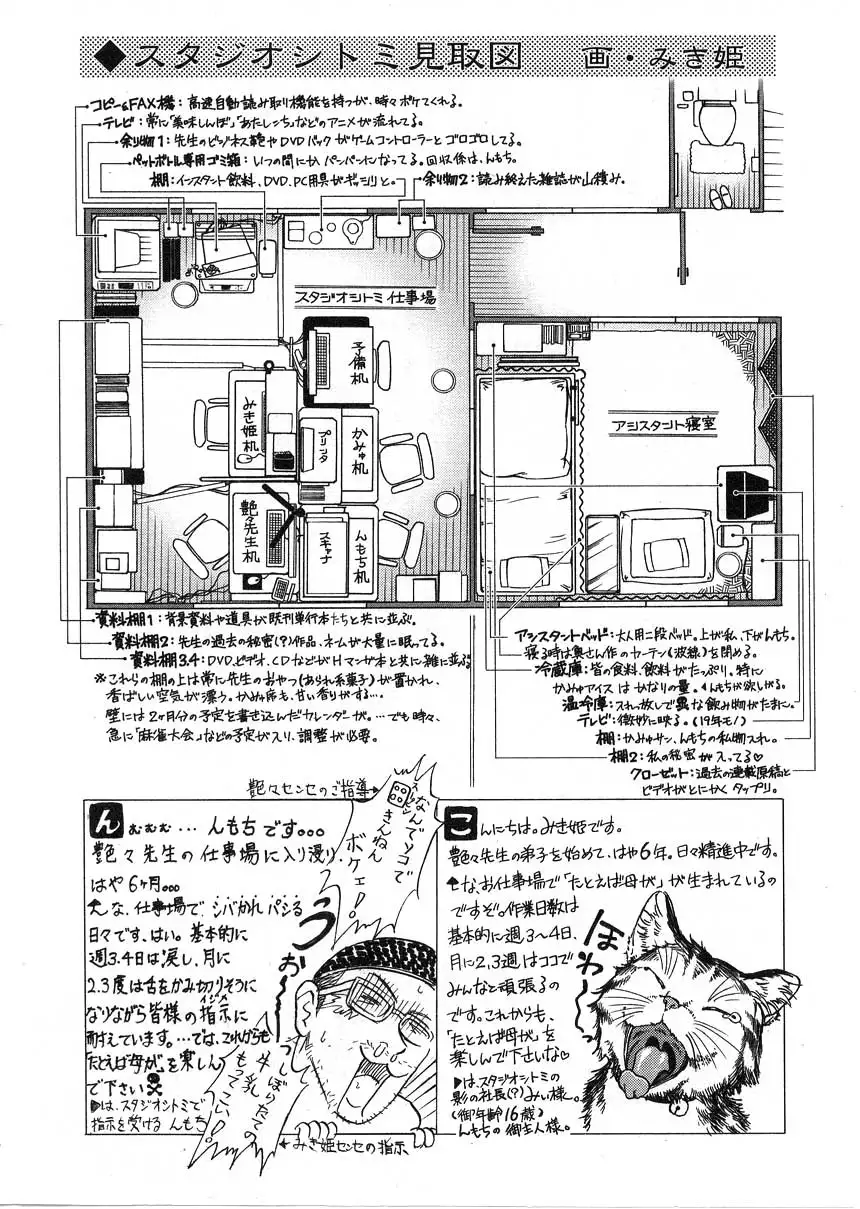 ◆スタジオシトミ見取図　画・みき姫
コピー&FAX機：高速自動読み取り機能を持つが、時々ボケてくれる。
テレビ：常に「美味しんぼ」「あたしンち」などのアニメが流れてる。
余り物1：先生のビジネス鞄やDVDパックがゲームコントローラーとゴロゴロしてる。
ペットボトル専用ゴミ箱：いつの間にかパンパンになってる。回収係は、んもち。
棚：インスタント飲料、DVD、PC用具がギッシリと。
余り物2：読み終えた雑誌が山積み。
スタジオシトミ仕事場
予備机
みき姫机
プリンタ
かみゅ机
艶々先生机
スキャナ
んもち机
アシスタント寝室
資料棚1：背景資料や道具が既刊単行本たちと共に並ぶ。
資料棚2：先生の過去の秘密(?)作品、ネームが大量に眠ってる。
資料棚3.4：DVD、ビデオ、CDなどがHマンガ本と共に雑に並ぶ。
※これらの棚の上は常に先生のおやつ(あられ系菓子)が置かれ、
香ばしい空気が漂う。かみゅ席も、甘い香りがする…。
壁には2ヶ月分の予定を書き込んだカレンダーが。…でも時々、
急に「麻雀大会」などの予定が入り、調整が必要。
アシスタントベッド：大人用二段ベッド。上が私、下がんもち。
寝る時は奥さん作のカーテン(波線)を閉める。
冷蔵庫：皆の食料、飲料がたっぷり。特に
かみゅアイスはかなりの量。んもちが欲しがる。
温冷庫：スれっ放しで異な飲み物がたまに。
テレビ：微妙に映る。(19年モノ)
棚：かみゅサン、んもちの私物入れ。
棚2：私の秘密が入ってる♡
クローゼット：過去の連載原稿と
ビデオがとにかくタップリ。
艶々センセのご指導→
なんでソコで
きんねん
ボケェ!
んむむむ…んもちです。。。
艶々先生の仕事場に入り浸り、
はや6ヶ月。。。
そんな、仕事場でシバかれパシる
日々です、はい。基本的に
週3.4日は戻し、月に
2.3度は舌をかみ切りそうに
なりながら皆様の指示に
イジメ
耐えています。…では、これからも
「たとえば母が」を楽しん
で下さい☠
▶は、スタジオシトミで
指示を受ける んもち
うおー
しぼりたての
牛乳
もってこい!
←みき姫センセの指示
こんにちは。みき姫です。
艶々先生の弟子を始めて、はや6年。日々精進中です。
そんな、お仕事場で「たとえば母が」が生まれているの
ですぞ。作業日数は
基本的に週3～4日、
月に2,3週はココで
みんなと頑張るの
です。これからも、
「たとえば母が」を
楽しんで下さいな♡
▶は、スタジオシトミの
影の社長(?)みぃ様。
(御年齢16歳)
んもちの御主人様。
ほわ～っ